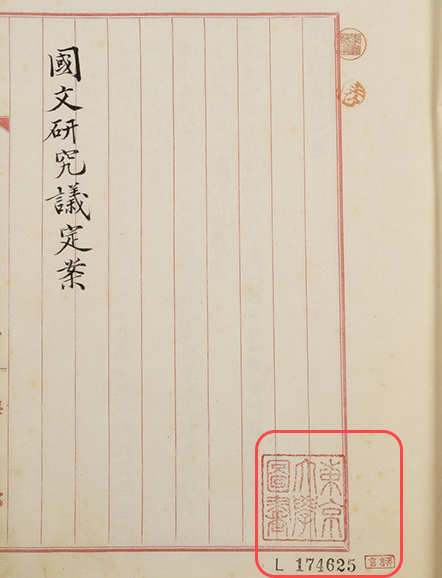 國文研究議定案
東京
大學
圖書
L 174625